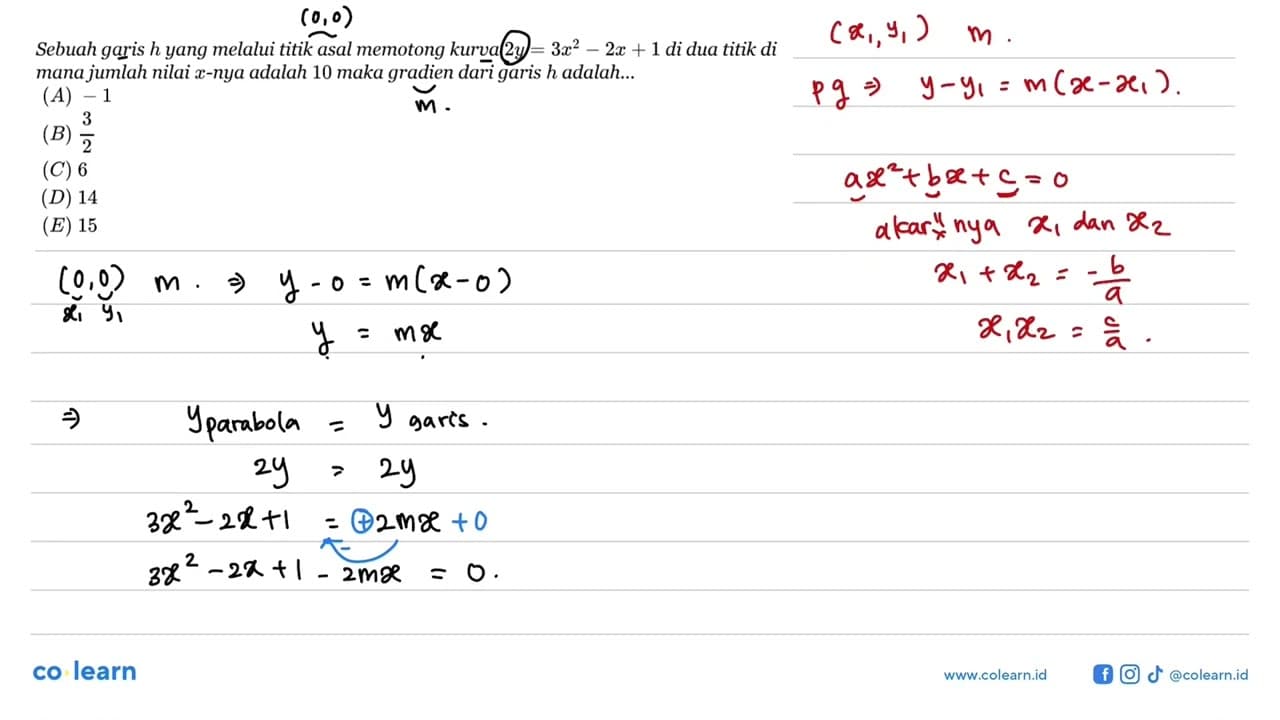 (0,0)
Sebuah garis h yang melalui titik asal memotong kurva 2y = 3x² − 2x + 1 di dua titik di
mana jumlah nilai x-nya adalah 10 maka gradien dari garis h adalah...
m.
(A) − 1
(B) 3/2
(C) 6
(D) 14
(E) 15
(x₁, y₁) m.
pg ⇒ y − y₁ = m(x − x₁).
ax² + bx + c = 0
akar"nya x₁ dan x₂
x₁ + x₂ = −b/a
x₁x₂ = c/a.
(0,0) m. ⇒ y − 0 = m(x − 0)
x₁ y₁
y = mx
⇒ y parabola = y garis.
2y = 2y
3x² − 2x + 1 = +2mx + 0
−
3x² − 2x + 1 − 2mx = 0.
co learn
www.colearn.id
@colearn.id